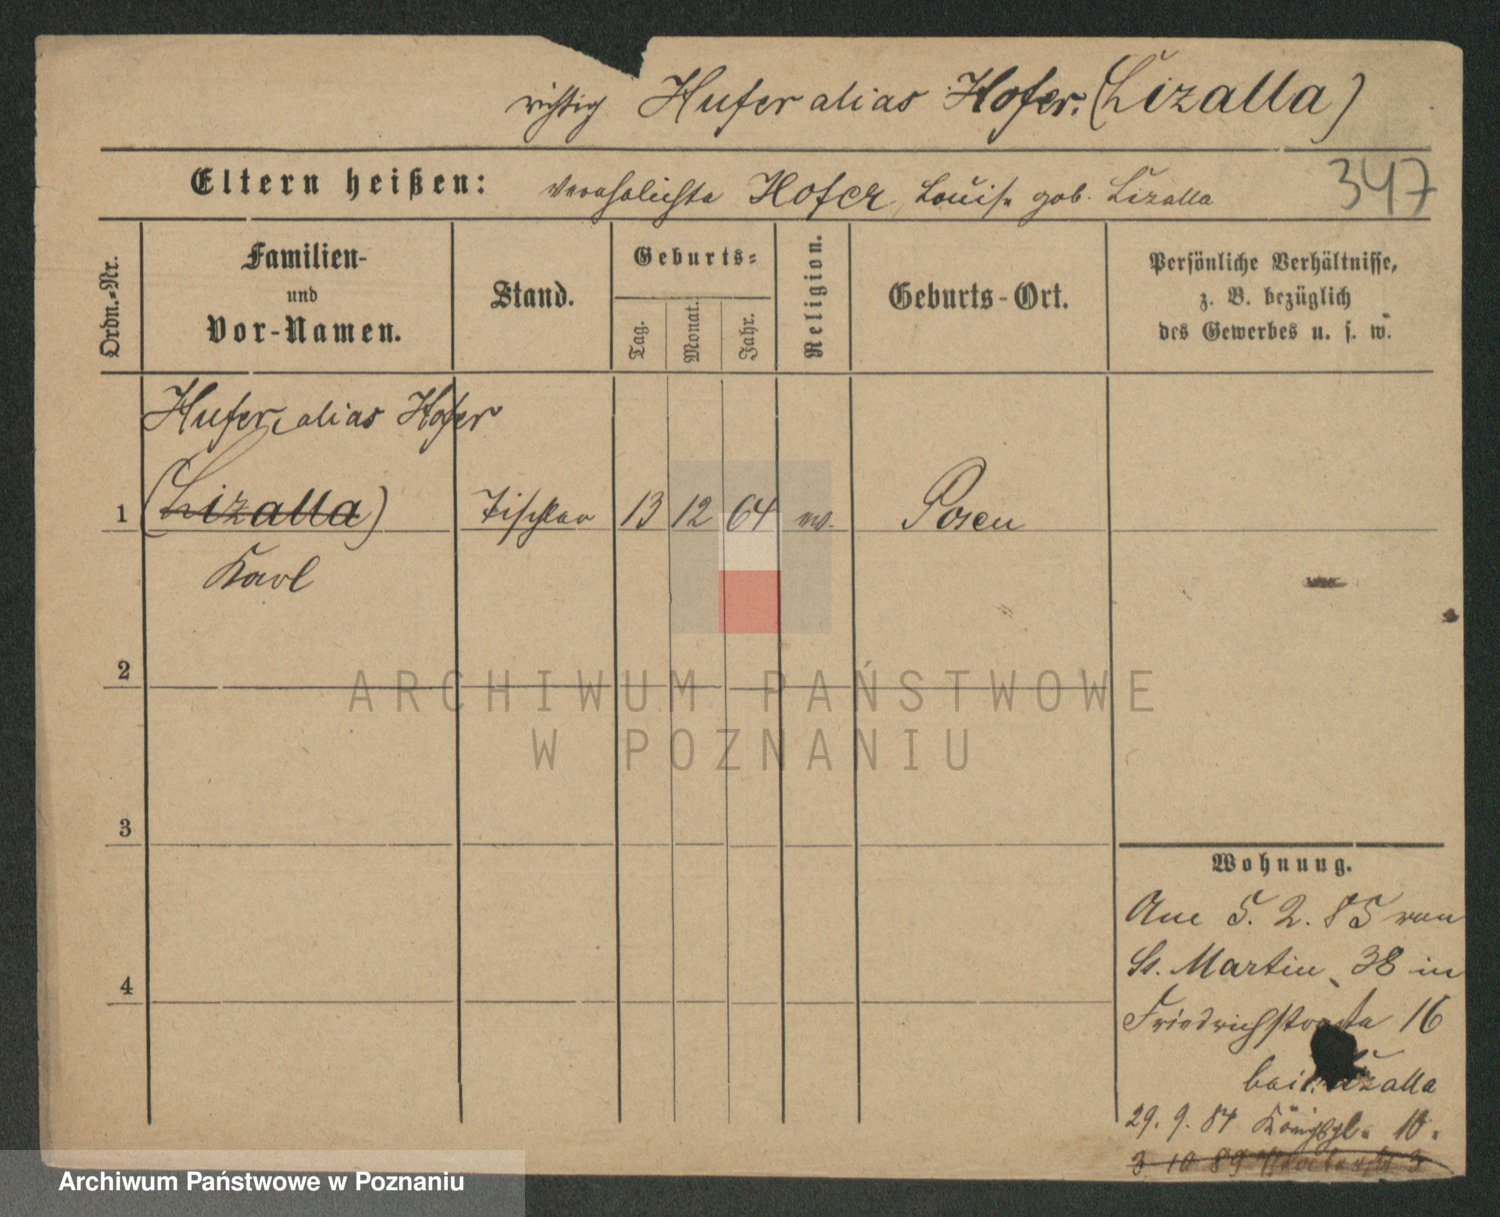 richtig Hufer alias Hofer. (Lizalla)
Eltern heißen: verehelichte Hofer, Louise geb. Lizalla
347
Ordn.-Nr.
Familien-
und
Vor-Namen.
Stand.
Geburts-
Tag.
Monat.
Jahr.
Religion.
Geburts-Ort.
Persönliche Verhältnisse,
z. B. bezüglich
des Gewerbes u. s. w.
Hufer, alias Hofer
1 (Lizalla) Tischler 13 12 64 ev. Posen
Karl
2
ARCHIWUM PAŃSTWOWE
W POZNANIU
3
Wohnung.
Am 5. 2. 85 von
St. Martin 38 in
4
Friedrichstraße 16
bei Lizalla
29. 9. 84 Königspl. 10.
3 10 89 3
Archiwum Państwowe w Poznaniu